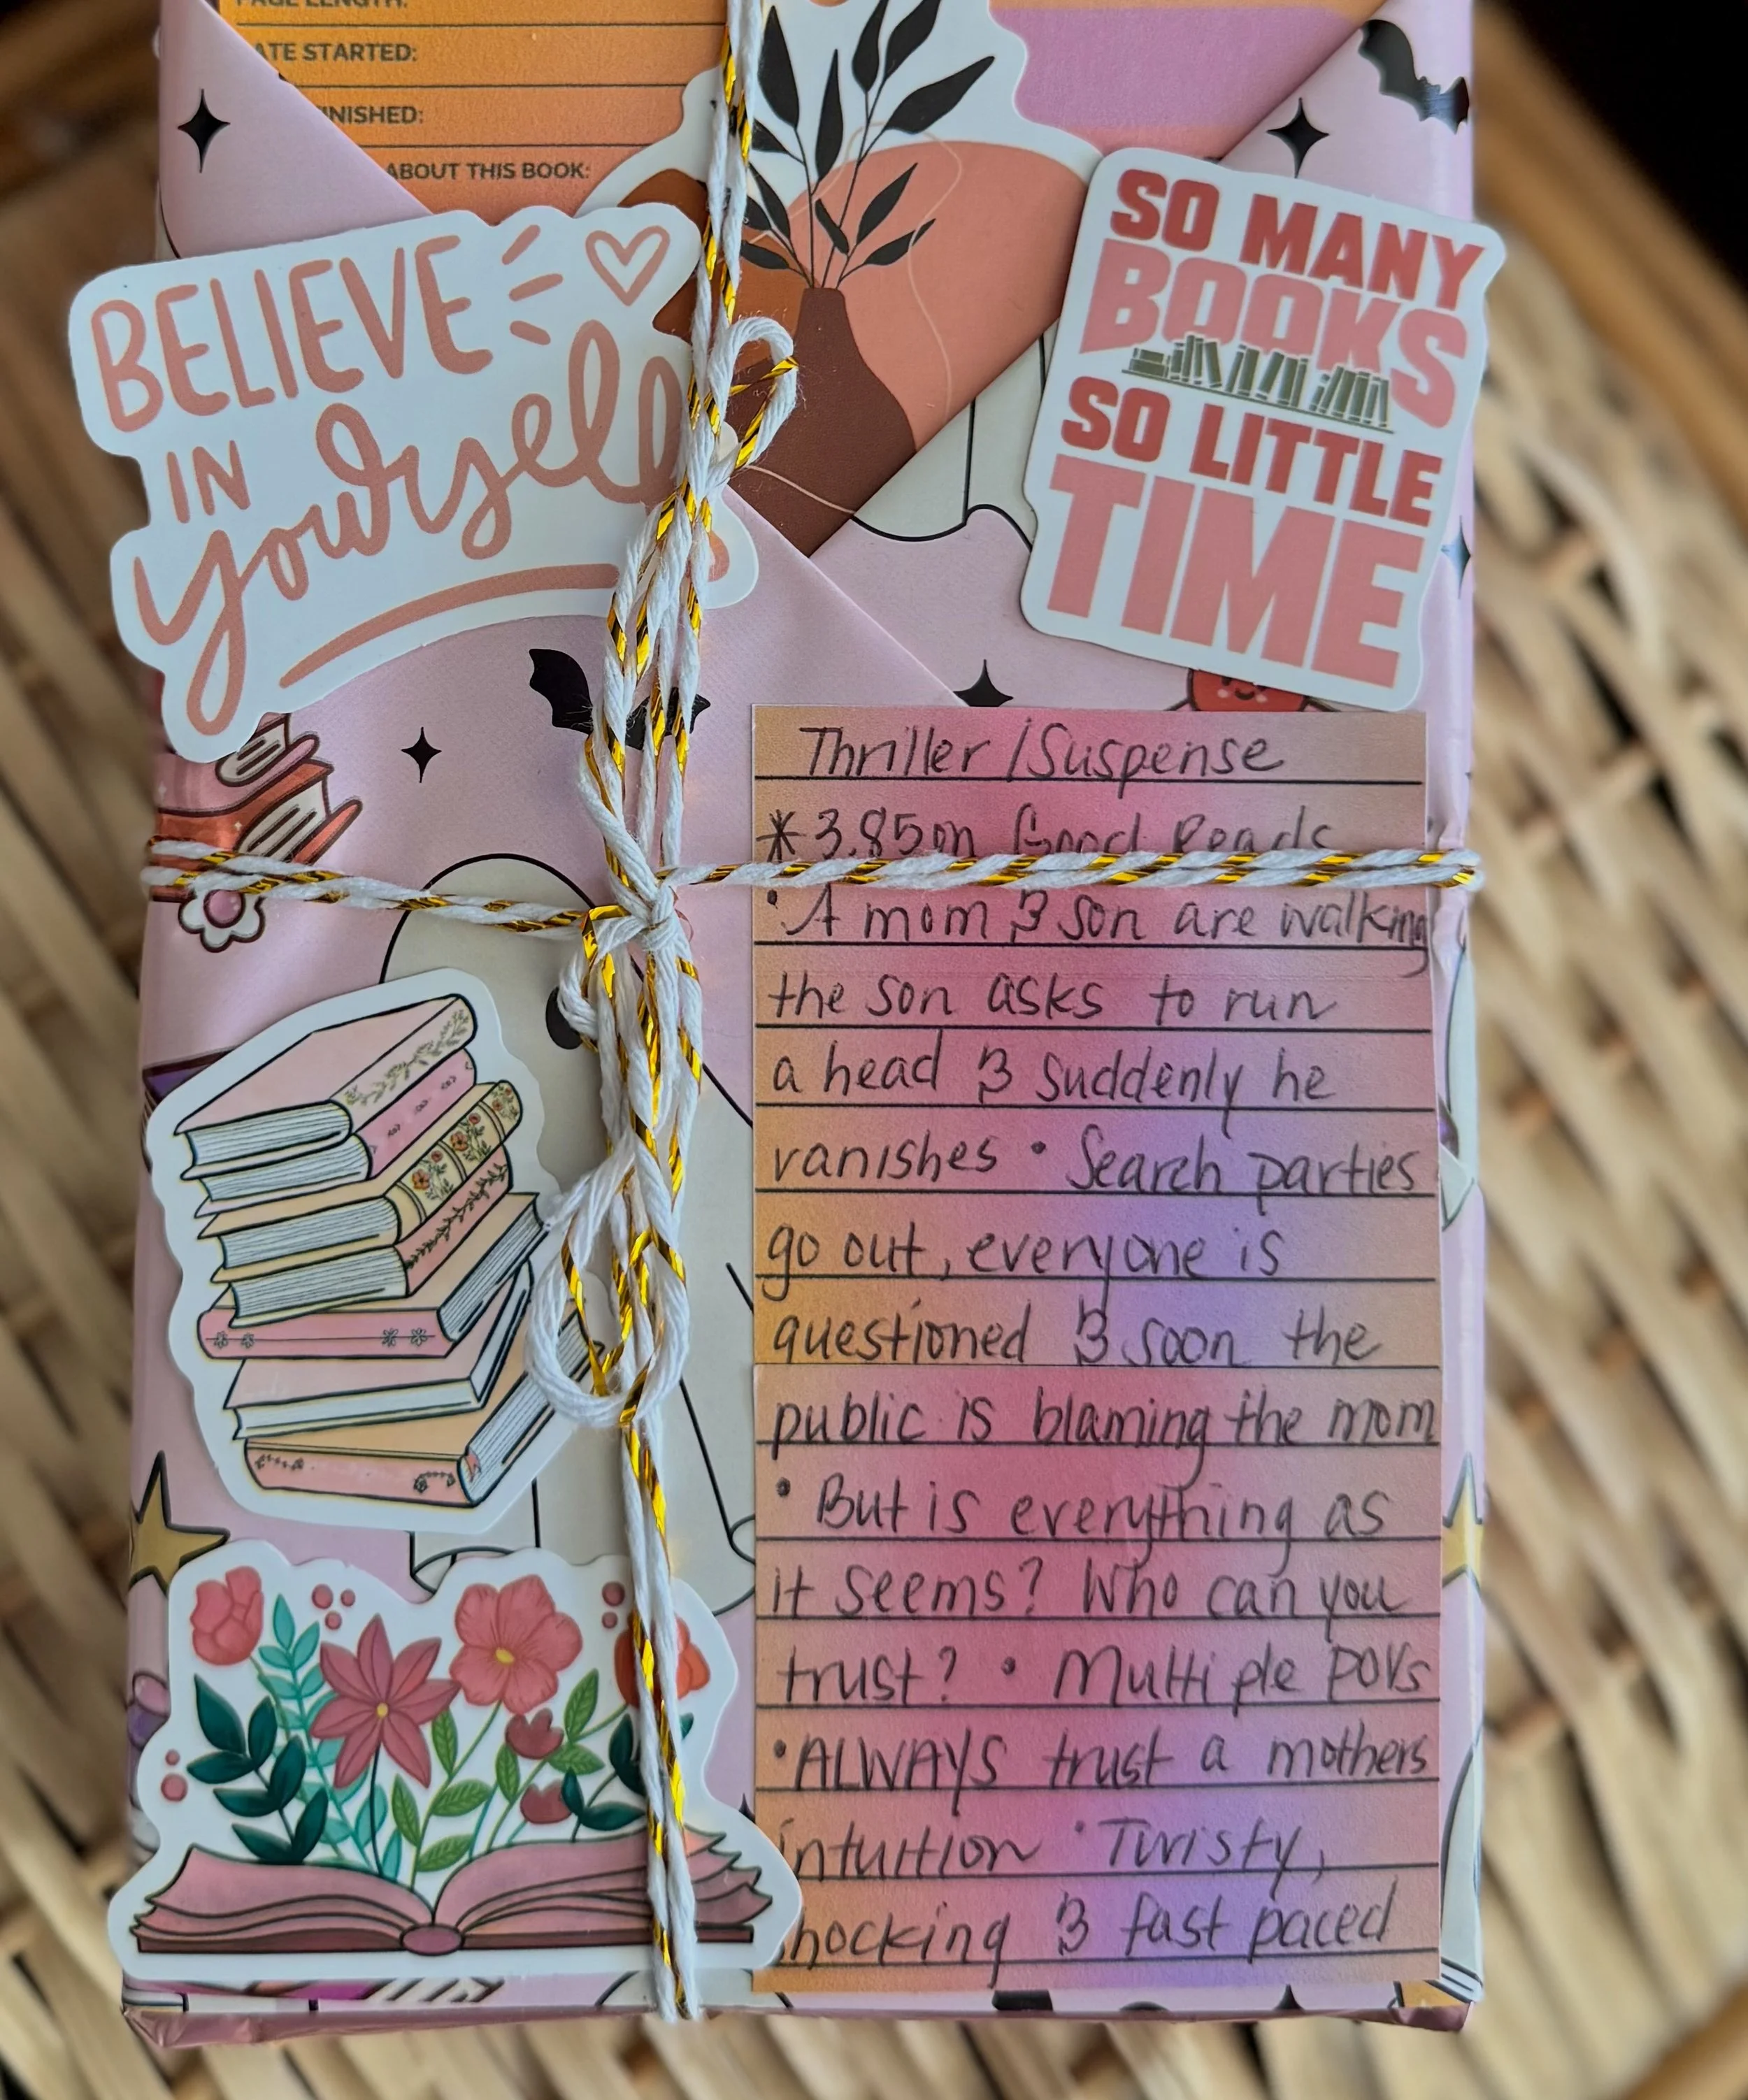 PAGE LENGTH:
ATE STARTED:
INISHED:
ABOUT THIS BOOK:
BELIEVE
IN
yourself
SO MANY
BOOKS
SO LITTLE
TIME
Thriller/Suspense
*3.85 on Good Reads
• A mom & son are walking
the son asks to run
a head & suddenly he
vanishes • Search parties
go out, everyone is
questioned & soon the
public is blaming the mom
• But is everything as
it seems? Who can you
trust? • Multiple POVs
• ALWAYS trust a mothers
intuition • Twisty,
hocking & fast paced